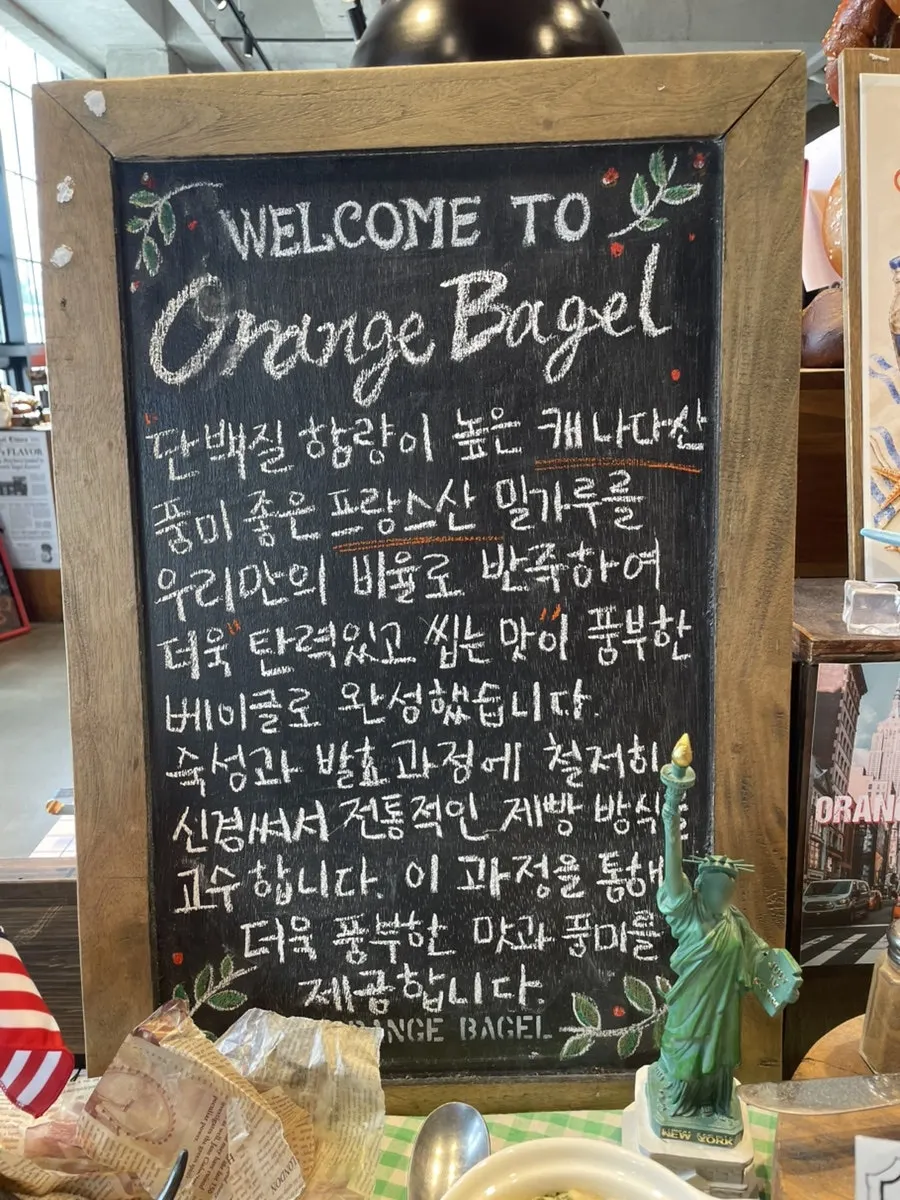 WELCOME TO
Orange Bagel
단백질 함량이 높은 캐나다산
풍미 좋은 프랑스산 밀가루를
우리만의 비율로 반죽하여
더욱 탄력있고 씹는 맛이 풍부한
베이글로 완성했습니다.
숙성과 발효과정에 철저히
신경써서 전통적인 제빵 방식을
고수합니다. 이 과정을 통해
더욱 풍부한 맛과 풍미를
제공합니다.
ORANGE BAGEL
NEW YORK
ORAN
FLAVOR
LONDON